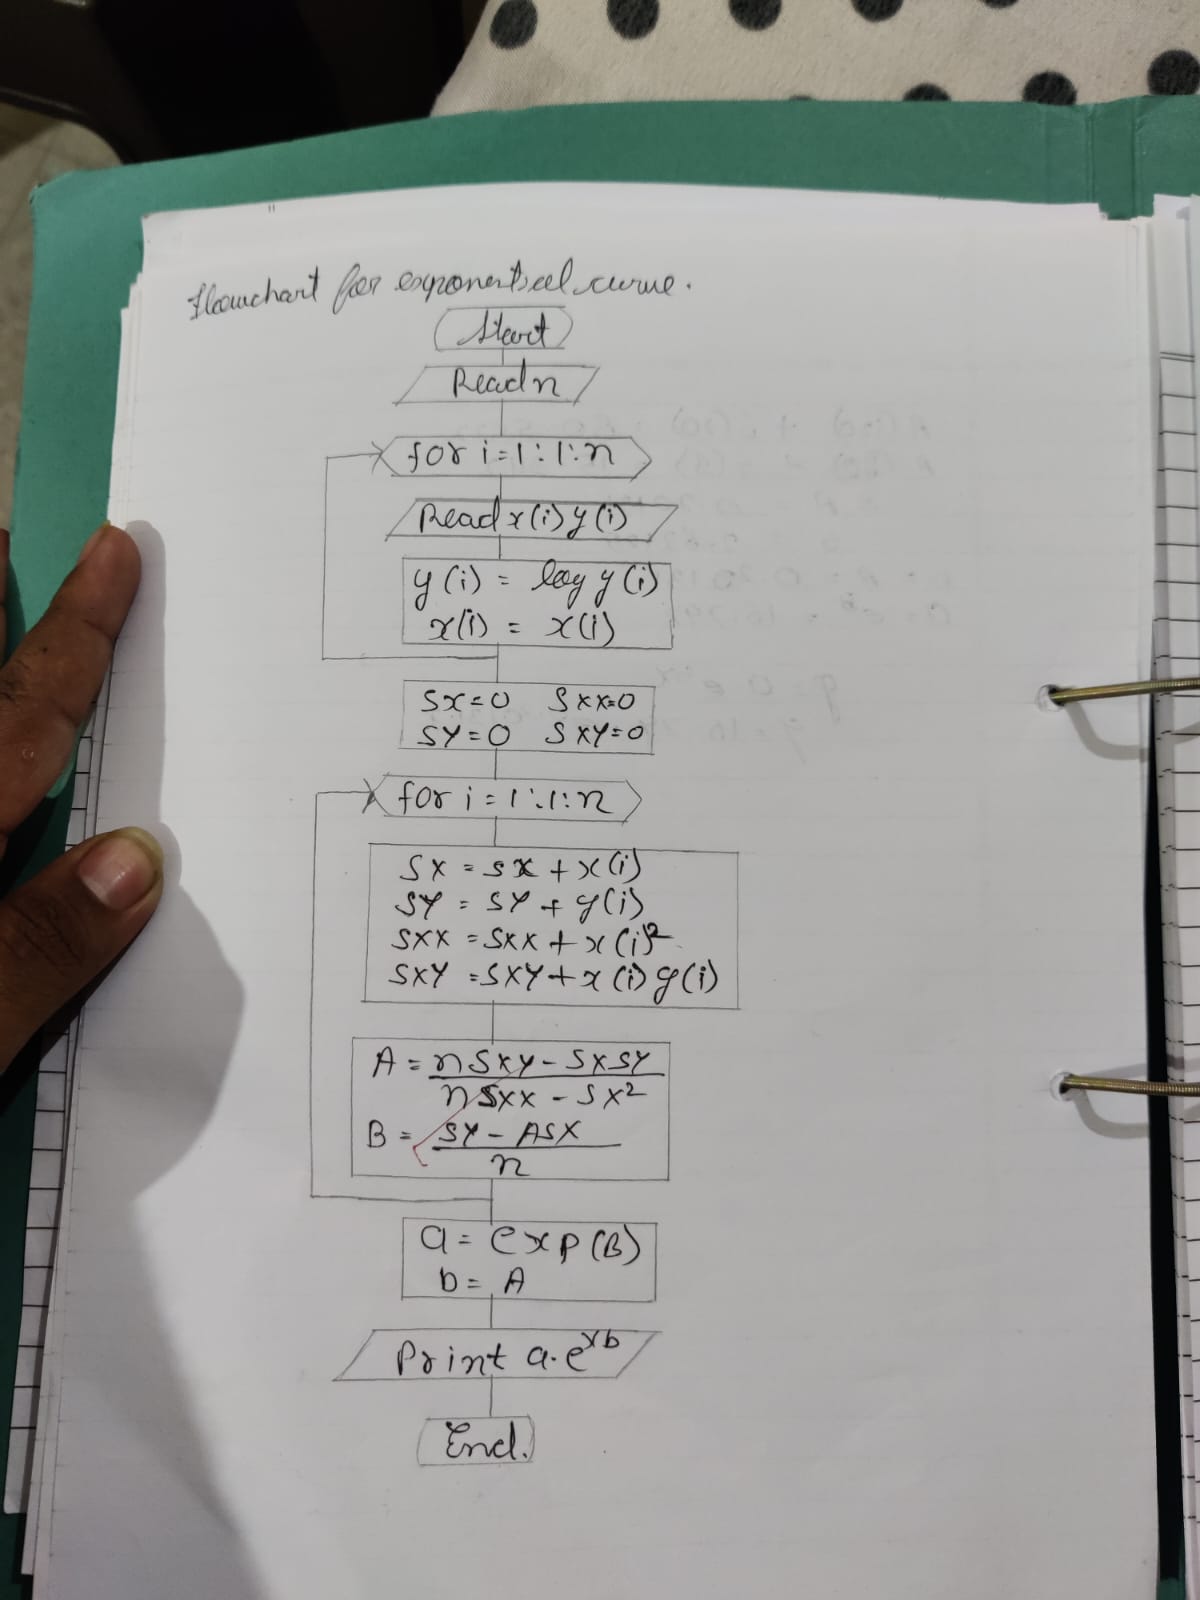 Flowchart for exponential curve.
Start
Read n
for i=1:1:n
Read x(i) y(i)
y(i) = log y(i)
x(i) = x(i)
Sx=0 Sxx=0
SY=0 SXY=0
for i=1:1:n
SX = SX + x(i)
SY = SY + y(i)
SXX = SXX + x(i)²
SXY = SXY + x(i) y(i)
A = nSXY - SXSY / nSXX - SX²
B = SY - ASX / n
a = exp(B)
b = A
Print a.e^xb
End.